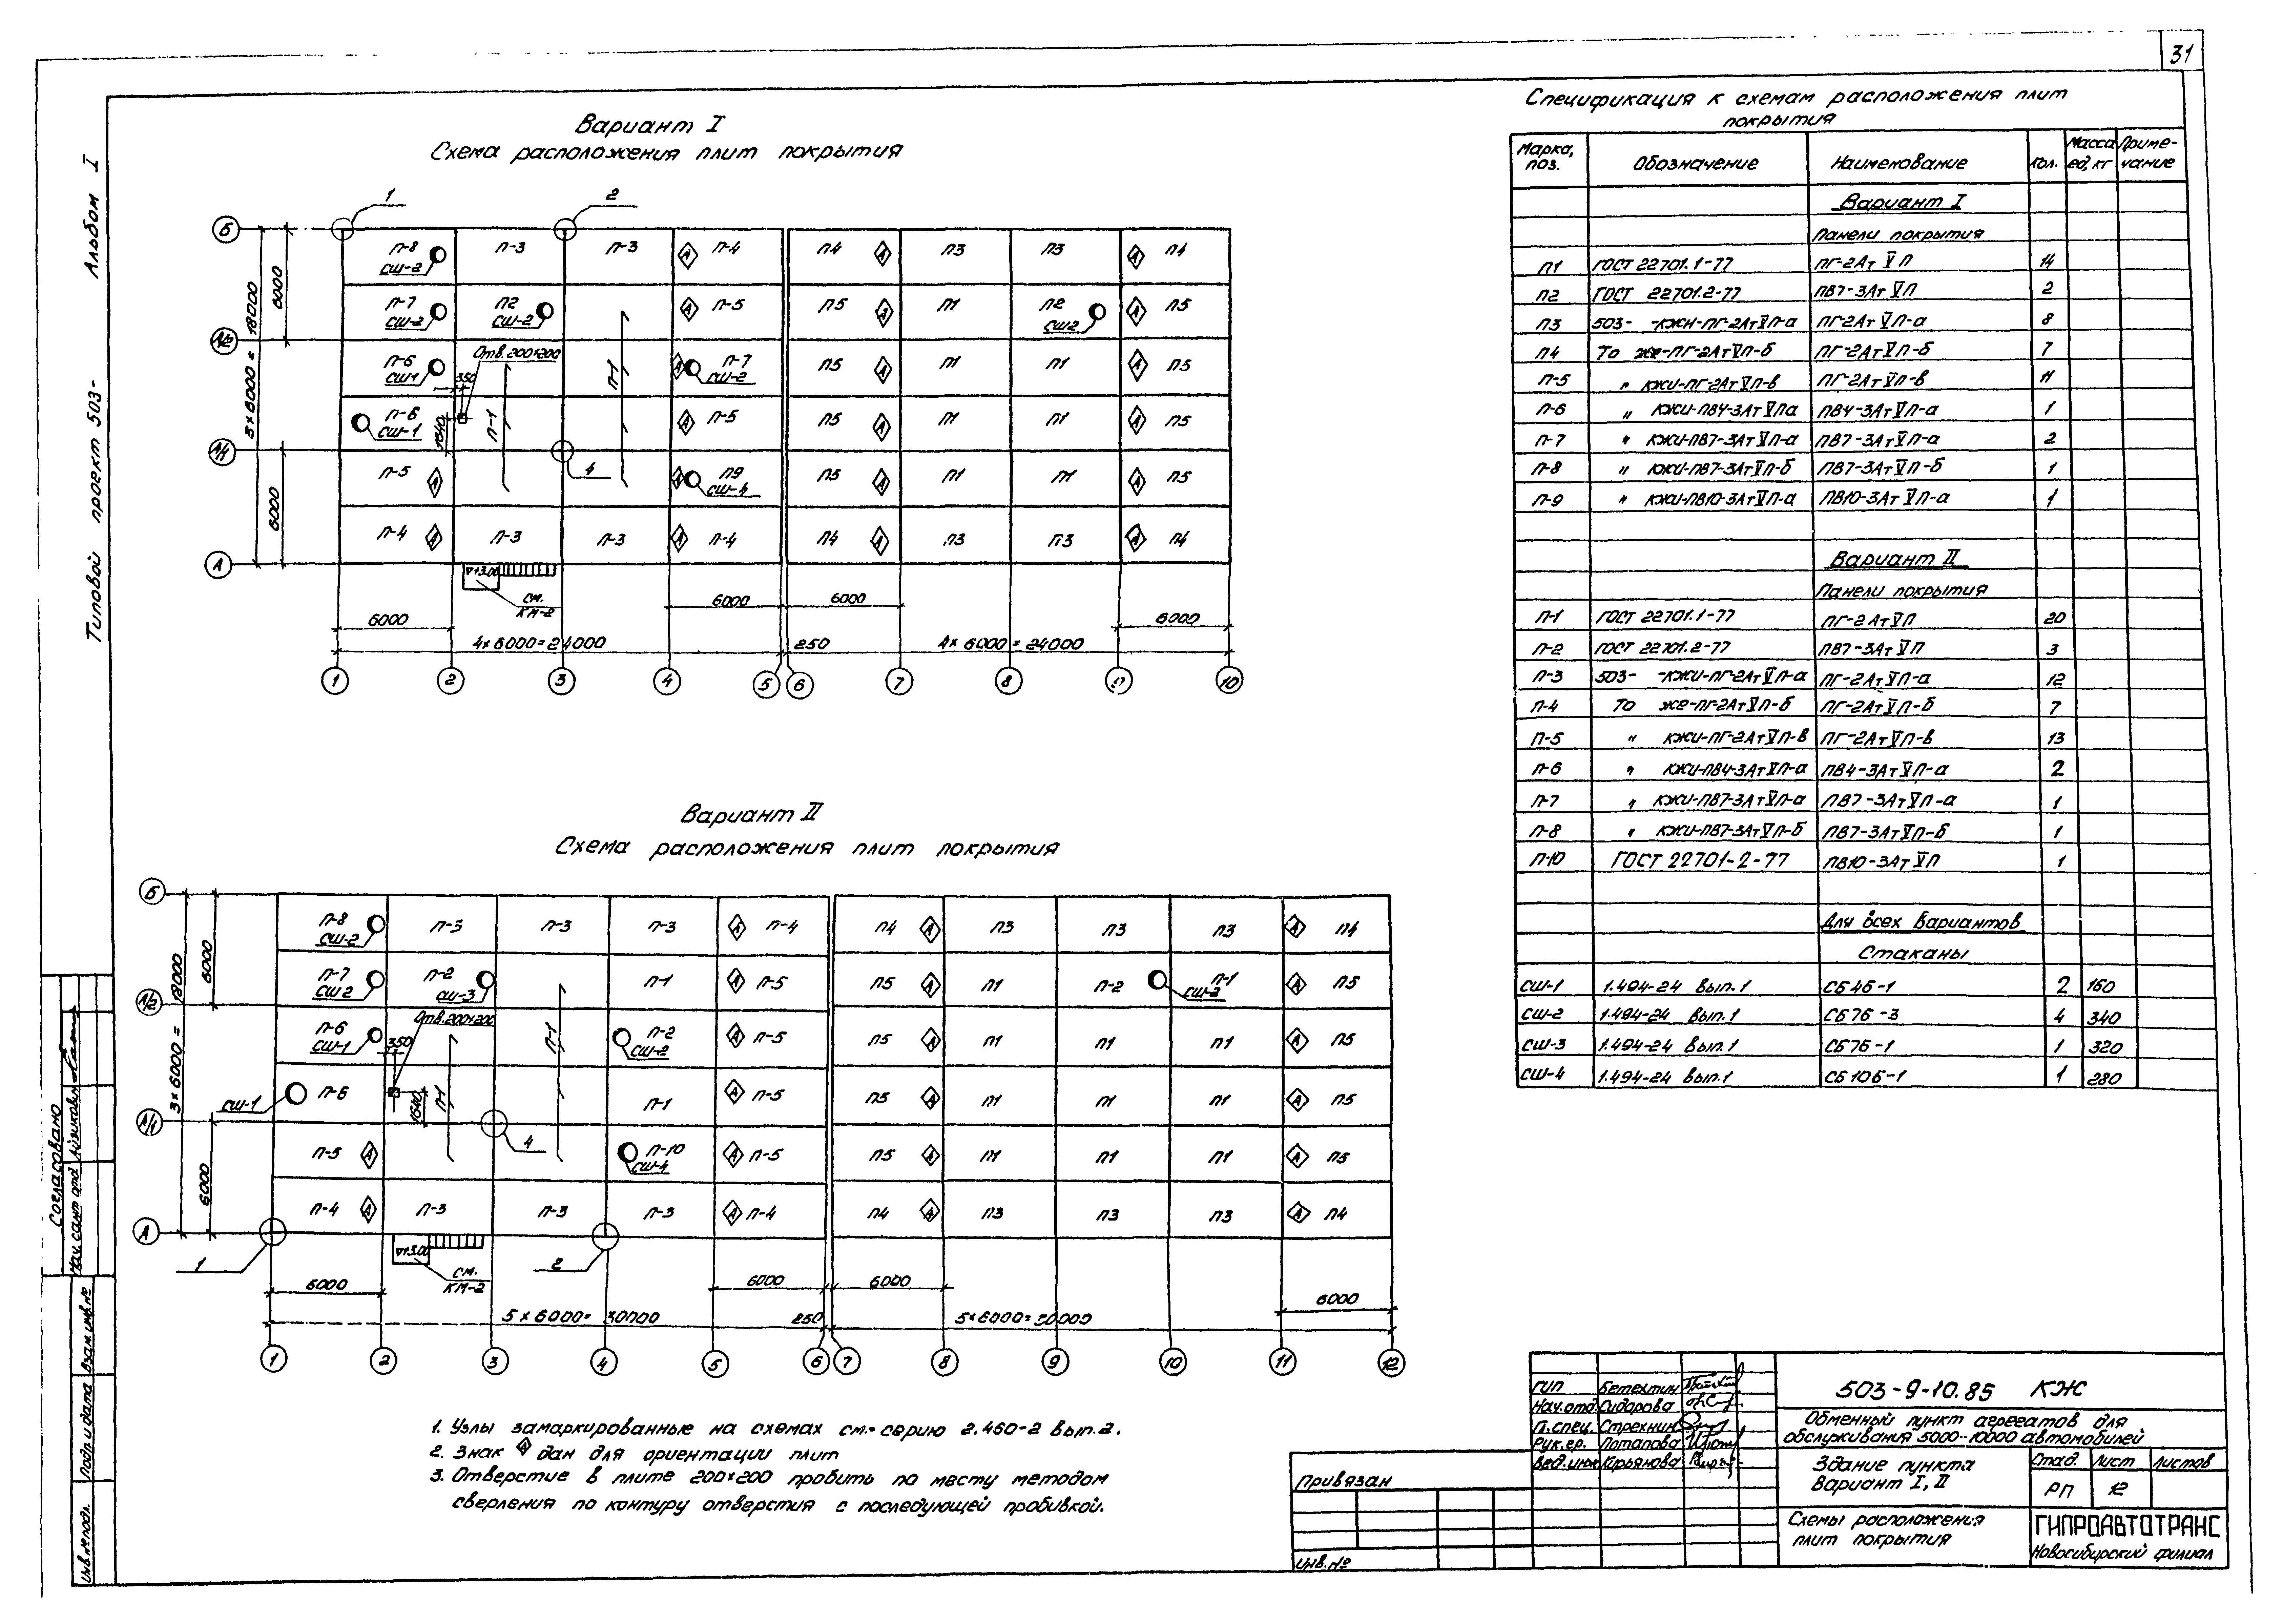 31
Типовой проект 503- Альбом I
Вариант I
Схема расположения плит покрытия
1 2
Б П-8 СШ-2 П-3 П-3 А П-4 П4 А П3 П3 А П4
П-7 СШ-2 П2 СШ-2 А П-5 П5 А П1 П2 СШ2 А П5
А/2 П-6 СШ1 350 Отв. 200×200 П-1 А П-7 СШ-2 П5 А П1 П1 А П5
П-6 СШ-1 1640 П-1 А П-5 П5 А П1 П1 А П5
А/1 П-5 А 4 А П9 СШ-4 П5 А П1 П1 А П5
А П-4 А П-3 П-3 А П-4 П4 А П3 П3 А П4
3×6000=18000 6000 6000
+3.00 см. КМ-2
6000 6000 6000 6000
4×6000=24000 250 4×6000=24000
1 2 3 4 5 6 7 8 9 10
Вариант II
Схема расположения плит покрытия
Б П-8 СШ-2 П-3 П-3 П-3 А П-4 П4 А П3 П3 П3 А П4
П-7 СШ2 П-2 СШ-3 П-1 А П-5 П5 А П1 П-2 П-1 СШ-2 А П5
А/2 П-6 СШ-1 350 Отв. 200×200 П-1 П-2 СШ-2 А П-5 П5 А П1 П1 П1 А П5
СШ-1 П-6 1640 П-1 П-1 А П-5 П5 А П1 П1 П1 А П5
А/1 П-5 А 4 П-10 СШ-4 А П-5 П5 А П1 П1 П1 А П5
А П-4 А П-3 П-3 П-3 А П-4 П4 А П3 П3 П3 А П4
3×6000=18000 6000 6000
1 +3.00 см. КМ-2 2
6000 6000 6000 6000
5×6000=30000 250 5×6000=30000
1 2 3 4 5 6 7 8 9 10 11 12
1. Узлы замаркированные на схемах см. серию 2.460-2 вып.2.
2. Знак А дан для ориентации плит
3. Отверстие в плите 200×200 пробить по месту методом
сверления по контуру отверстия с последующей пробивкой.
Спецификация к схемам расположения плит
покрытия
Марка, поз. Обозначение Наименование Кол. Масса ед, кг Примечание
Вариант I
Панели покрытия
П1 ГОСТ 22701.1-77 ПГ-2АтVП 14
П2 ГОСТ 22701.2-77 ПВ7-3АтVП 2
П3 503- -КЖИ-ПГ-2АтVП-а ПГ-2АтVП-а 8
П4 То же-ПГ-2АтVП-б ПГ-2АтVП-б 7
П-5 " КЖИ-ПГ-2АтVП-в ПГ-2АтVП-в 11
П-6 " КЖИ-ПВ4-3АтVПа ПВ4-3АтVП-а 1
П-7 " КЖИ-ПВ7-3АтVП-а ПВ7-3АтVП-а 2
П-8 " КЖИ-ПВ7-3АтVП-б ПВ7-3АтVП-б 1
П-9 " КЖИ-ПВ10-3АтVП-а ПВ10-3АтVП-а 1
Вариант II
Панели покрытия
П-1 ГОСТ 22701.1-77 ПГ-2АтVП 20
П-2 ГОСТ 22701.2-77 ПВ7-3АтVП 3
П-3 503- -КЖИ-ПГ-2АтVП-а ПГ-2АтVП-а 12
П-4 То же-ПГ-2АтVП-б ПГ-2АтVП-б 7
П-5 " КЖИ-ПГ-2АтVП-в ПГ-2АтVП-в 13
П-6 " КЖИ-ПВ4-3АтVП-а ПВ4-3АтVП-а 2
П-7 " КЖИ-ПВ7-3АтVП-а ПВ7-3АтVП-а 1
П-8 " КЖИ-ПВ7-3АтVП-б ПВ7-3АтVП-б 1
П-10 ГОСТ 22701-2-77 ПВ10-3АтVП 1
Для всех вариантов
Стаканы
СШ-1 1.494-24 вып.1 СБ4б-1 2 160
СШ-2 1.494-24 вып.1 СБ7б-3 4 340
СШ-3 1.494-24 вып.1 СБ7б-1 1 320
СШ-4 1.494-24 вып.1 СБ10б-1 1 280
Согласовано
Нач. сант. отд.
Инв.№подл. Подп. и дата Взам.инв.№
Привязан
Инв.№
ГИП Бетехтин
Нач.отд. Сидорова
Гл.спец. Стрехнин
Рук.гр. Потапова
Вед.инж. Кирьянова
503-9-10.85 КЖ
Обменный пункт агрегатов для
обслуживания 5000..10000 автомобилей
Здание пункта
Вариант I, II
Стад. Лист Листов
РП 12
Схемы расположения
плит покрытия
ГИПРОАВТОТРАНС
Новосибирский филиал